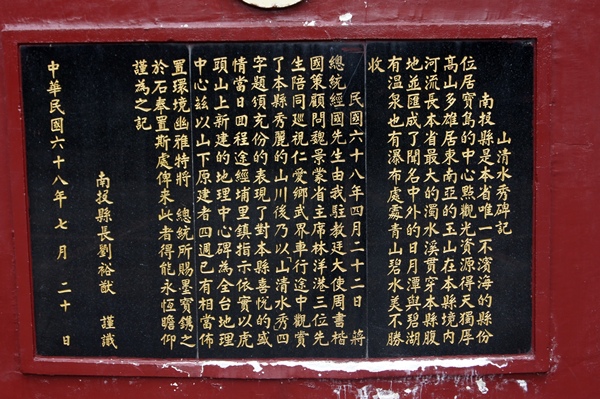 山清水秀碑記
南投縣是本省唯一不濱海的縣份
位居寶島的中心點觀光資源得天獨厚
高山多雄居東南亞的玉山在本縣境內
河流長本省最大的濁水溪貫穿本縣腹
地並匯成了聞名中外的日月潭與碧湖
有溫泉也有瀑布處處青山碧水美不勝
收
民國六十八年四月二十二日 蔣
總統經國先生由我駐教廷大使周書楷
國策顧問魏景蒙省主席林洋港三位先
生陪同巡視仁愛鄉武界車行途中觀賞
了本縣秀麗的山川後乃以「山清水秀四
字題頒充份的表現了對本縣喜悅的盛
情當日回程途經埔里鎮指示依實以虎
頭山上新建的地理中心碑為全台地理
中心茲以山下原建者四週已有相當佈
置環境幽雅特將 總統所賜墨寶鐫之
於石奉置斯處俾來此者得能永恆瞻仰
謹為之記
南投縣長劉裕猷 謹識
中華民國六十八年七月二十日